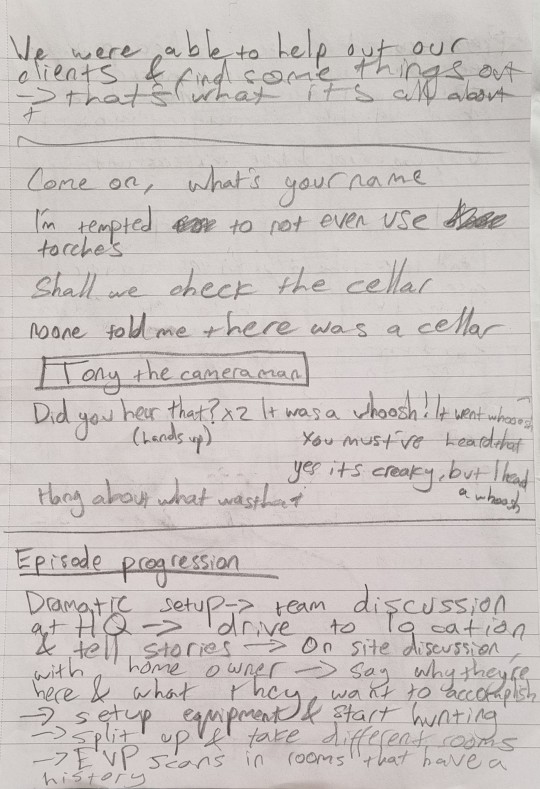 We were able to help out our
clients & find some things out
-> that's what it's all about
+
Come on, what's your name
I'm tempted to not even use
torches
Shall we check the cellar
noone told me there was a cellar
Tony the cameraman
Did you hear that? x2 It was a whoosh! It went whoosh
(hands up) You must've heard that
yes it's creaky, but I head
a whoosh
Hang about what was that
Episode progression
Dramatic setup -> team discussion
at HQ -> drive to location
& tell stories -> On site discussion
with home owner -> say why they're
here & what they want to accomplish
-> setup equipment & start hunting
-> split up & take different rooms
-> EVP scans in rooms that have a
history